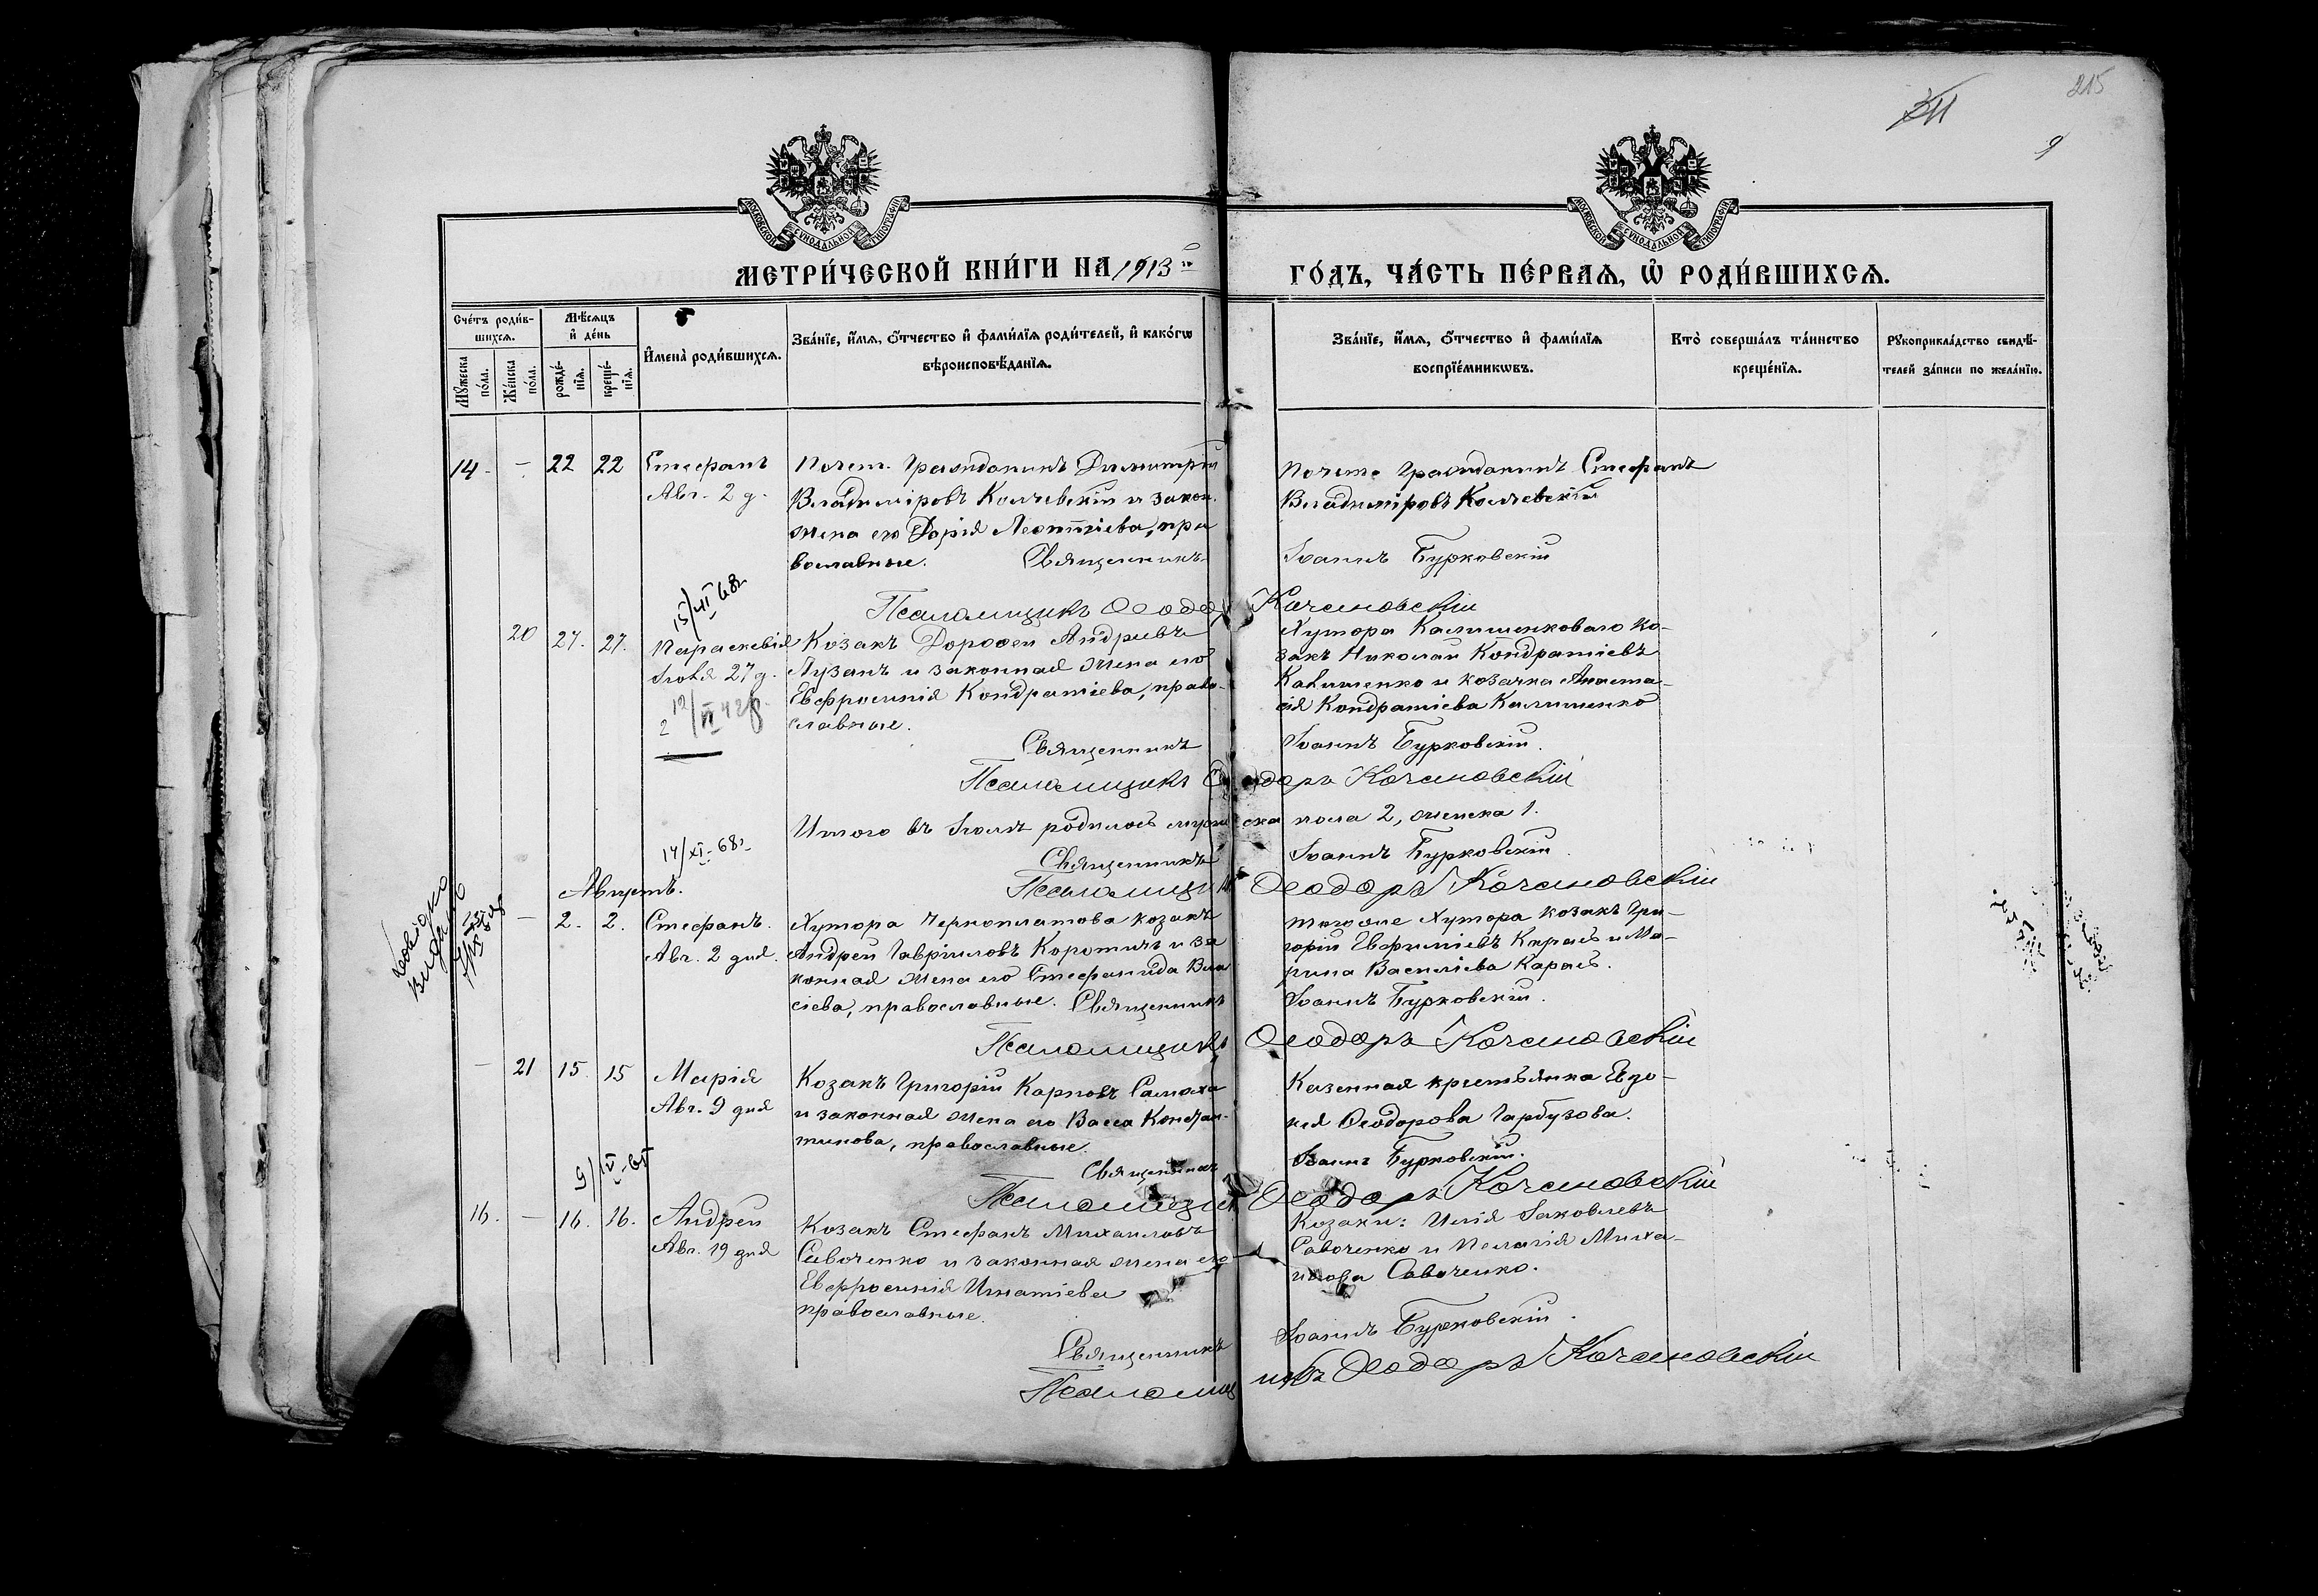 215
9
МОСКОВСКОЙ СѴНОДАЛЬНОЙ ТИПОГРАФІИ
МОСКОВСКОЙ СѴНОДАЛЬНОЙ ТИПОГРАФІИ
МЕТРИ́ЧЕСКОЙ КНИ́ГИ НА 1913й ГО́ДЪ, ЧА́СТЬ ПЕ́РВАѦ, Ѡ҆ РОДИ́ВШИХСѦ.
Сче́тъ роди́в-
шихсѧ.
Мѣ́сѧцъ
и҆ де́нь
Мꙋ́жеска по́ла.
Же́нска по́ла.
рожде́-нїѧ.
креще́-нїѧ.
И҆мена̀ роди́вшихсѧ.
Зва́нїе, и҆́мѧ, ѻ҆́тчество и҆ фами́лїѧ роди́телей, и҆ како́гѡ
вѣроисповѣ́данїѧ.
Зва́нїе, и҆́мѧ, ѻ҆́тчество и҆ фами́лїѧ
воспрїе́мникѡвъ.
Кто̀ соверша́лъ та́инство
креще́нїѧ.
Рꙋкоприкла́дство свидѣ́-
телей за́писи по жела́нїю.
14. - 22 22 Стефанъ
Авг. 2 д.
Почет. Гражданинъ Димитрій
Владиміровъ Колчевскій и закон.
жена его Дарія Леонтіева, пра
вославные. Священникъ
Почет. Гражданинъ Стефанъ
Владиміровъ Колчевскій
Іоаннъ Бурковскій
Псаломщикъ Ѳеодоръ Качановскій
15/XI 68г
20 27. 27. Параскевія
Іюля 27 д.
Козакъ Дорофей Андреевъ
Лузанъ и законная жена его
Евфросинія Кондратіева, право-
славные.
Хутора Калишенкова го ко-
закъ Николай Кондратіевъ
Калишенко и козачка Анаста-
сія Кондратіева Калишенко
Священникъ Іоаннъ Бурковскій.
Псаломщикъ Ѳеодоръ Качановскій
Итого въ Іюлѣ родилось мужеска пола 2, женска 1.
14/XI-68г
Священникъ Іоаннъ Бурковскій.
Псаломщикъ Ѳеодоръ Качановскій
Августъ.
- 2. 2. Стефанъ.
Авг. 2 дня.
Хутора Черноплатова козакъ
Андрей Гавріиловъ Коротичъ и за
конная жена его Стефанида Вла
сіева, православные. Священникъ
того же Хутора козакъ Гри-
горій Евфиміевъ Карась и Ма-
рина Василіева Карась.
Іоаннъ Бурковскій.
Псаломщикъ Ѳеодоръ Качановскій
- 21 15 15 Марія
Авг. 9 дня
Козакъ Григорій Карповъ Самоха
и законная жена его Васса Констан-
тинова, православные.
Казенная крестьянка Евдо-
кія Ѳеодорова Гарбузова.
Священникъ Іоаннъ Бурковскій.
Псаломщикъ Ѳеодоръ Качановскій
9/IV-65
16. - 16. 16. Андрей
Авг. 19 дня
Козакъ Стефанъ Михаиловъ
Савоченко и законная жена его
Евфросинія Игнатіева
православные.
Козаки: Илія Іаковлевъ
Савоченко и Пелагія Миха-
илова Савоченко.
Священникъ Іоаннъ Бурковскій.
Псаломщикъ Ѳеодоръ Качановскій